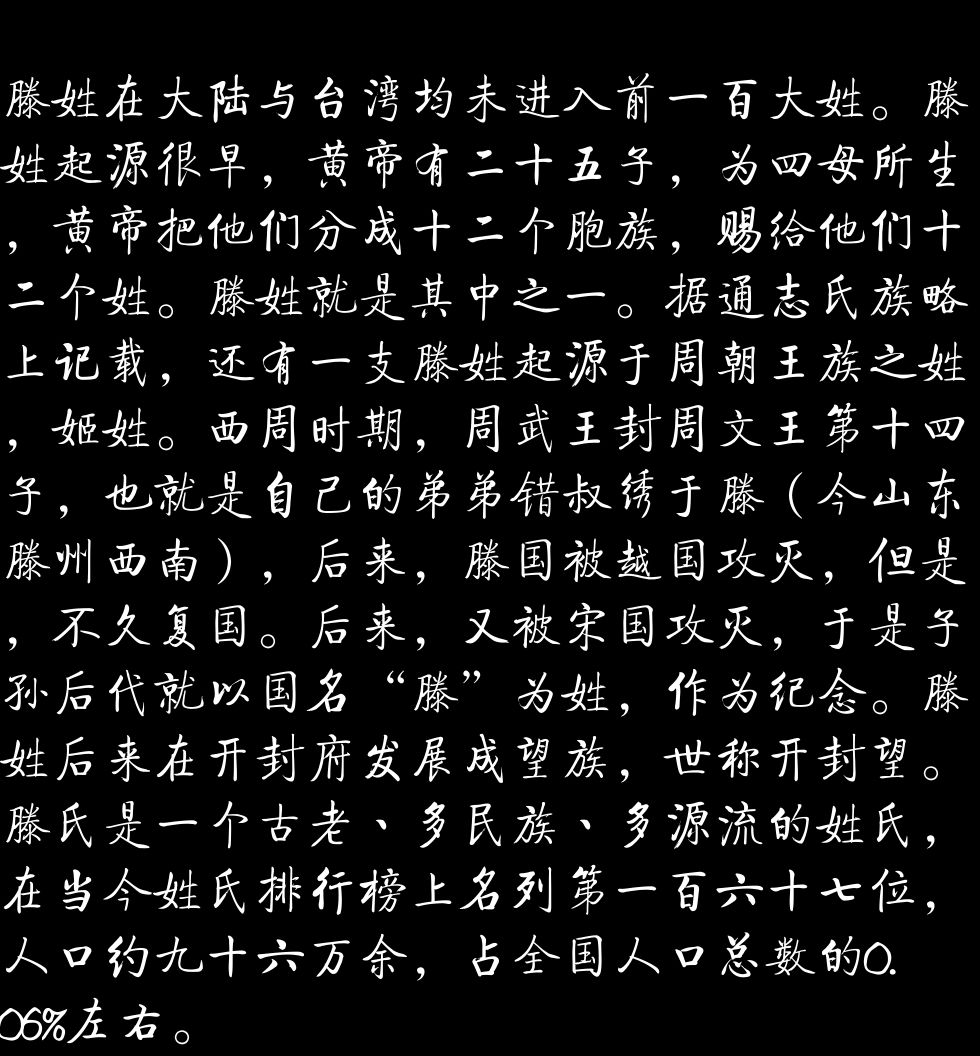 滕姓在大陆与台湾均未进入前一百大姓。滕
姓起源很早，黄帝有二十五子，为四母所生
，黄帝把他们分成十二个胞族，赐给他们十
二个姓。滕姓就是其中之一。据通志氏族略
上记载，还有一支滕姓起源于周朝王族之姓
，姬姓。西周时期，周武王封周文王第十四
子，也就是自己的弟弟错叔绣于滕（今山东
滕州西南），后来，滕国被越国攻灭，但是
，不久复国。后来，又被宋国攻灭，于是子
孙后代就以国名“滕”为姓，作为纪念。滕
姓后来在开封府发展成望族，世称开封望。
滕氏是一个古老、多民族、多源流的姓氏，
在当今姓氏排行榜上名列第一百六十七位，
人口约九十六万余，占全国人口总数的0.
06%左右。